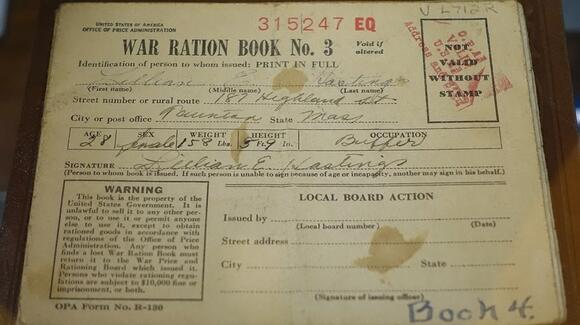 V L712R
UNITED STATES OF AMERICA
OFFICE OF PRICE ADMINISTRATION
315247 EQ
WAR RATION BOOK No. 3
Void if
altered
NOT
VALID
WITHOUT
STAMP
Identification of person to whom issued: PRINT IN FULL
Lillian E. Hastings
(First name) (Middle name) (Last name)
Street number or rural route 187 Highland St.
City or post office Taunton State Mass
AGE SEX WEIGHT HEIGHT OCCUPATION
28 female 158 Lbs. 5 Ft. 9 In. Buffer
SIGNATURE Lillian E. Hastings
(Person to whom book is issued. If such person is unable to sign because of age or incapacity, another may sign in his behalf.)
WARNING
This book is the property of the
United States Government. It is
unlawful to sell it to any other per-
son, or to use it or permit anyone
else to use it, except to obtain
rationed goods in accordance with
regulations of the Office of Price
Administration. Any person who
finds a lost War Ration Book must
return it to the War Price and
Rationing Board which issued it.
Persons who violate rationing regu-
lations are subject to $10,000 fine or
imprisonment, or both.
LOCAL BOARD ACTION
Issued by
(Local board number) (Date)
Street address
City State
(Signature of issuing officer)
OPA Form No. R-130
Book 4.